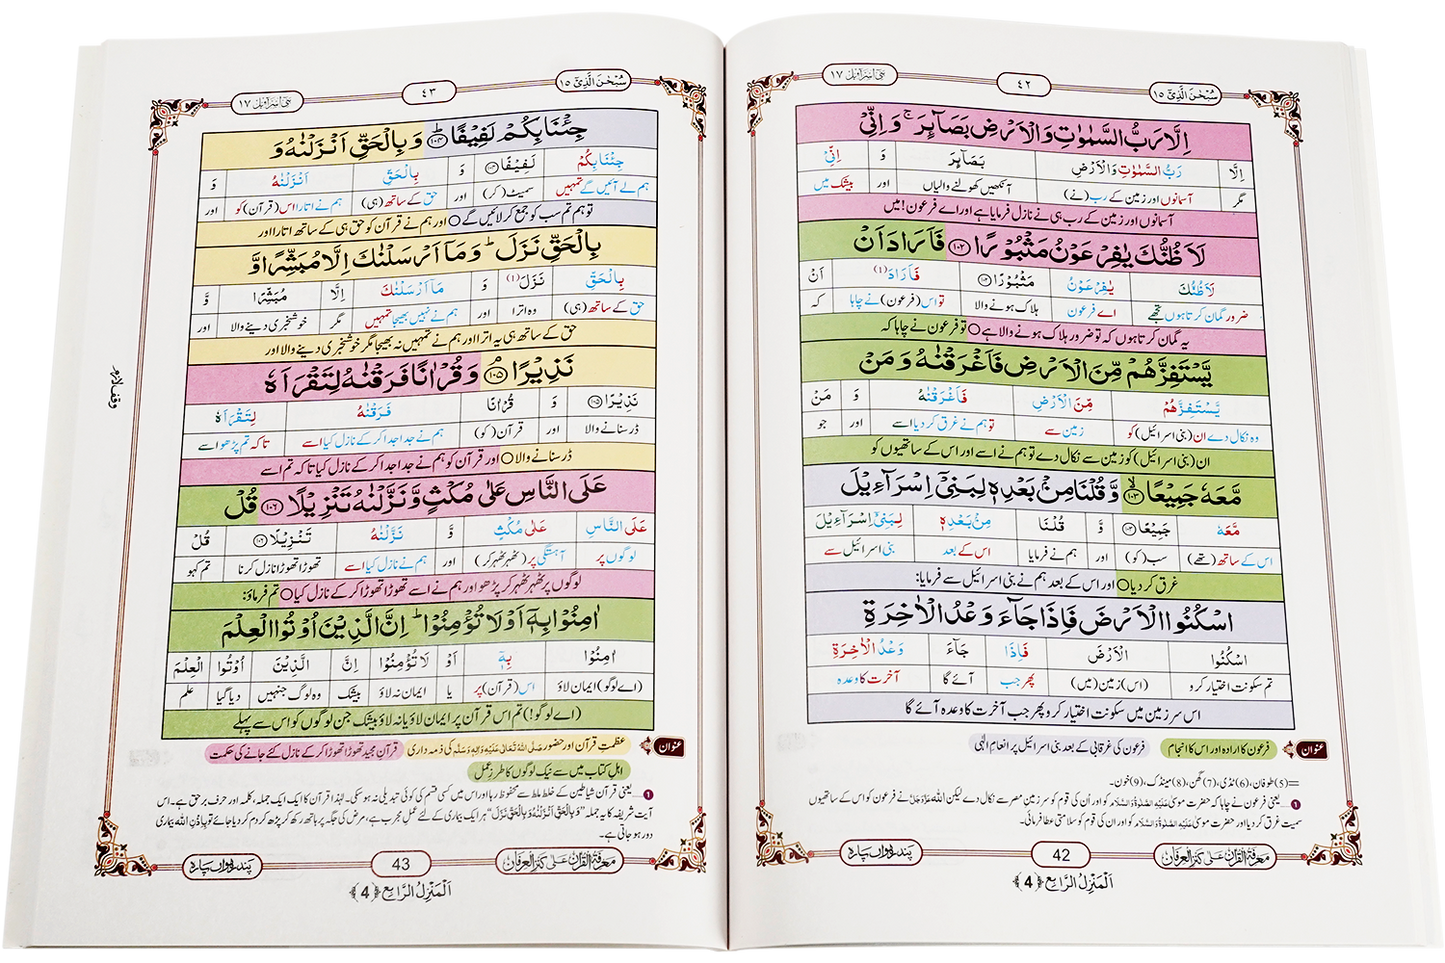 سُبْحٰنَ الَّذِیْۤ ١٥
٤٢
بنی اسراءیل ١٧
اِلَّا رَبُّ السَّمٰوٰتِ وَالْاَرْضِ بَصَآئِرَ ۚ وَ اِنِّیْ
اِلَّا رَبُّ السَّمٰوٰتِ وَ الْاَرْضِ بَصَآئِرَ وَ اِنِّیْ
مگر آسمانوں اور زمین کے رب (نے) آنکھیں کھولنے والیاں اور بیشک میں
آسمانوں اور زمین کے رب ہی نے نازل فرمایا ہے اور اے فرعون! میں
لَاَظُنُّكَ یٰفِرْعَوْنُ مَثْبُوْرًا ﴿١٠٢﴾ فَاَرَادَ اَنْ
لَاَظُنُّكَ یٰفِرْعَوْنُ مَثْبُوْرًا ﴿١٠٢﴾ فَاَرَادَ (١) اَنْ
ضرور گمان کرتا ہوں تجھے اے فرعون ہلاک ہونے والا تو اس (فرعون) نے چاہا کہ
یہ گمان کرتا ہوں کہ تو ضرور ہلاک ہونے والا ہے ○ تو فرعون نے چاہا کہ
یَّسْتَفِزَّهُمْ مِّنَ الْاَرْضِ فَاَغْرَقْنٰهُ وَ مَنْ
یَّسْتَفِزَّهُمْ مِّنَ الْاَرْضِ فَاَغْرَقْنٰهُ وَ مَنْ
وہ نکال دے ان (بنی اسرائیل) کو زمین سے تو ہم نے غرق کر دیا اسے اور جو
ان (بنی اسرائیل) کو زمین سے نکال دے تو ہم نے اسے اور اس کے ساتھیوں کو
مَّعَهٗ جَمِیْعًا ﴿١٠٣﴾ وَّ قُلْنَا مِنْۢ بَعْدِهٖ لِبَنِیْۤ اِسْرَآءِیْلَ
مَّعَهٗ جَمِیْعًا ﴿١٠٣﴾ وَّ قُلْنَا مِنْۢ بَعْدِهٖ لِبَنِیْۤ اِسْرَآءِیْلَ
اس کے ساتھ (تھے) سب (کو) اور ہم نے فرمایا اس کے بعد بنی اسرائیل سے
غرق کر دیا ○ اور اس کے بعد ہم نے بنی اسرائیل سے فرمایا:
اسْكُنُوا الْاَرْضَ فَاِذَا جَآءَ وَعْدُ الْاٰخِرَةِ
اسْكُنُوا الْاَرْضَ فَاِذَا جَآءَ وَعْدُ الْاٰخِرَةِ
تم سکونت اختیار کرو (اس) زمین (میں) پھر جب آئے گا آخرت کا وعدہ
اس سر زمین میں سکونت اختیار کرو پھر جب آخرت کا وعدہ آئے گا
عنوان فرعون کا ارادہ اور اس کا انجام فرعون کی غرقابی کے بعد بنی اسرائیل پر انعامِ الٰہی
=(5) طوفان، (6) ٹڈی، (7) گھن، (8) مینڈک، (9) خون۔
١ ...یعنی فرعون نے چاہا کہ حضرت موسیٰ عَلَیْہِ الصَّلٰوۃُ وَالسَّلَام کو اور اُن کی قوم کو سر زمینِ مصر سے نکال دے لیکن اللہ عَزَّوَجَلَّ نے فرعون کو اس کے ساتھیوں
سمیت غرق کر دیا اور حضرت موسیٰ عَلَیْہِ الصَّلٰوۃُ وَالسَّلَام کو اور ان کی قوم کو سلامتی عطا فرمائی۔
معرفۃ القرآن علیٰ کنز العرفان
42
پندرہواں پارہ
اَلْمَنْزِلُ الرَّابِع ﴿4﴾
سُبْحٰنَ الَّذِیْۤ ١٥
٤٣
بنی اسراءیل ١٧
جِئْنَا بِكُمْ لَفِیْفًا ﴿١٠٤﴾ؕ وَ بِالْحَقِّ اَنْزَلْنٰهُ وَ
جِئْنَا بِكُمْ لَفِیْفًا ﴿١٠٤﴾ وَ بِالْحَقِّ اَنْزَلْنٰهُ وَ
ہم لے آئیں گے تمہیں سمیٹ (کر) اور حق کے ساتھ (ہی) ہم نے اتارا اس (قرآن) کو اور
تو ہم تم سب کو جمع کر لائیں گے ○ اور ہم نے قرآن کو حق ہی کے ساتھ اتارا اور
بِالْحَقِّ نَزَلَ ؕ وَ مَاۤ اَرْسَلْنٰكَ اِلَّا مُبَشِّرًا وَّ
بِالْحَقِّ نَزَلَ (١) وَ مَاۤ اَرْسَلْنٰكَ اِلَّا مُبَشِّرًا وَّ
حق کے ساتھ (ہی) وہ اترا اور ہم نے نہیں بھیجا تمہیں مگر خوشخبری دینے والا اور
حق کے ساتھ ہی یہ اترا اور ہم نے تمہیں نہ بھیجا مگر خوشخبری دینے والا اور
نَذِیْرًا ﴿١٠٥﴾ۘ وَ قُرْاٰنًا فَرَقْنٰهُ لِتَقْرَاَهٗ
نَذِیْرًا ﴿١٠٥﴾ وَ قُرْاٰنًا فَرَقْنٰهُ لِتَقْرَاَهٗ
ڈر سنانے والا اور قرآن (کو) ہم نے جدا جدا کر کے نازل کیا اسے تاکہ تم پڑھو اسے
ڈر سنانے والا ○ اور قرآن کو ہم نے جدا جدا کر کے نازل کیا تا کہ تم اسے
وقف لازم
عَلَی النَّاسِ عَلٰی مُكْثٍ وَّ نَزَّلْنٰهُ تَنْزِیْلًا ﴿١٠٦﴾ قُلْ
عَلَی النَّاسِ عَلٰی مُكْثٍ وَّ نَزَّلْنٰهُ تَنْزِیْلًا ﴿١٠٦﴾ قُلْ
لوگوں پر آہستگی پر (ٹھہر ٹھہر کر) اور ہم نے نازل کیا اسے تھوڑا تھوڑا نازل کرنا تم کہو
لوگوں پر ٹھہر ٹھہر کر پڑھو اور ہم نے اسے تھوڑا تھوڑا کر کے نازل کیا ○ تم فرماؤ:
اٰمِنُوْا بِهٖۤ اَوْ لَا تُؤْمِنُوْا ؕ اِنَّ الَّذِیْنَ اُوْتُوا الْعِلْمَ
اٰمِنُوْا بِهٖۤ اَوْ لَا تُؤْمِنُوْا اِنَّ الَّذِیْنَ اُوْتُوا الْعِلْمَ
(اے لوگو) ایمان لاؤ اس (قرآن) پر یا ایمان نہ لاؤ بیشک وہ لوگ جنہیں دیا گیا علم
(اے لوگو!) تم اس قرآن پر ایمان لاؤ یا نہ لاؤ بیشک جن لوگوں کو اس سے پہلے
عنوان عظمتِ قرآن اور حضور صَلَّی اللہُ تَعَالٰی عَلَیْہِ وَاٰلِہٖ وَسَلَّم کی ذمہ داری قرآنِ مجید تھوڑا تھوڑا کر کے نازل کئے جانے کی حکمت
اہلِ کتاب میں سے نیک لوگوں کا طرزِ عمل
١ ...یعنی قرآن شیاطین کے خلط ملط سے محفوظ رہا اور اس میں کسی قسم کی کوئی تبدیلی نہ ہو سکی۔ لہٰذا قرآن کا ایک ایک جملہ، کلمہ اور حرف برحق ہے۔ اس
آیت شریفہ کا یہ جملہ "وَ بِالْحَقِّ اَنْزَلْنٰهُ وَ بِالْحَقِّ نَزَلَ" ہر ایک بیماری کے لئے عملِ مجرب ہے، مرض کی جگہ پر ہاتھ رکھ کر پڑھ کر دم کر دیا جائے تو باِذنِ اللہ بیماری
دور ہو جاتی ہے۔
معرفۃ القرآن علیٰ کنز العرفان
43
پندرہواں پارہ
اَلْمَنْزِلُ الرَّابِع ﴿4﴾